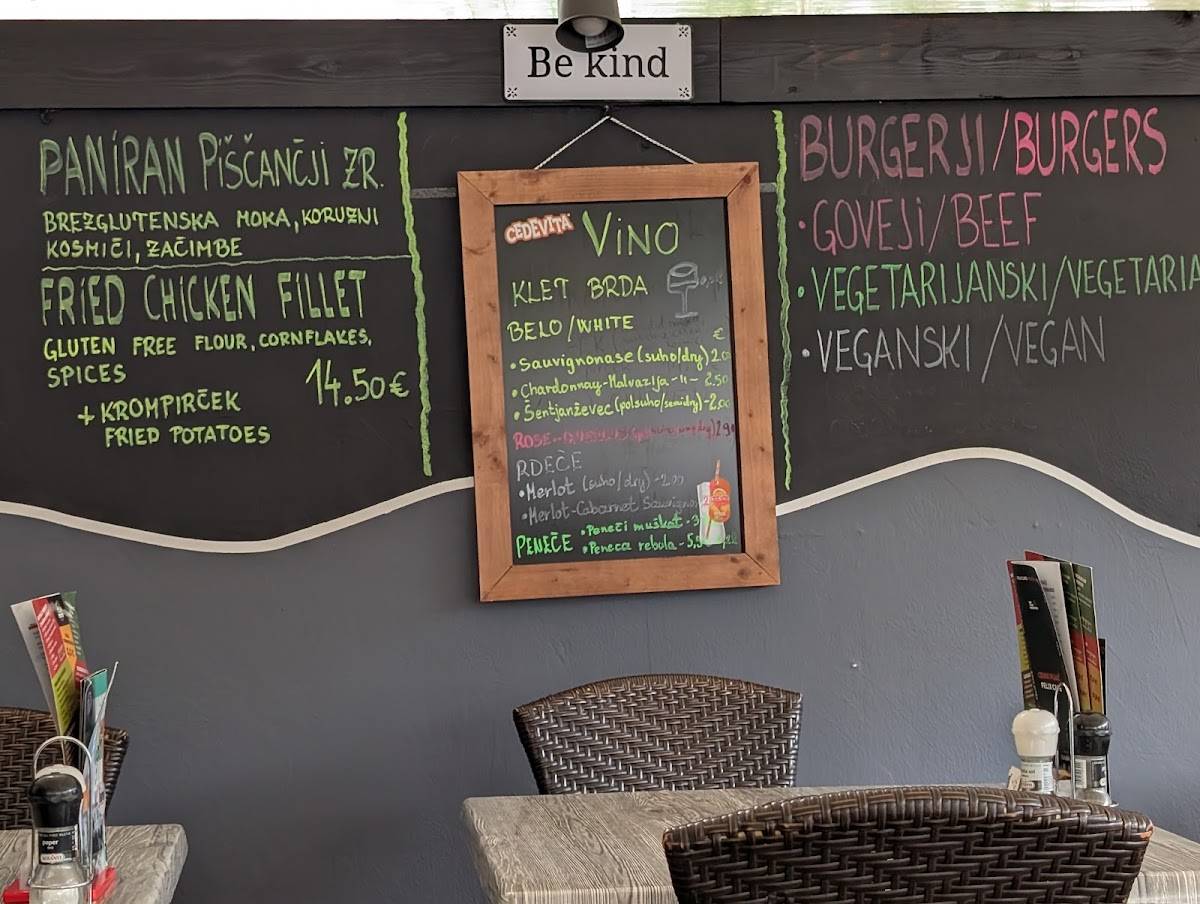 Be kind
PANiRAN PiŠČANČJi ZR.
BREZGLUTENSKA MOKA, KORUZNI
KOSMIČI, ZAČIMBE
FRiED CHICKEN FiLLET
GLUTEN FREE FLOUR, CORNFLAKES,
SPICES
14.50€
+ KROMPIRČEK
FRIED POTATOES
CEDEVITA
ViNO
KLET BRDA
BELO/WHITE
€
• Sauvignonase (suho/dry) 2.00
• Chardonnay-Malvazija -11- 2.50
• Šentjanževec (polsuho/semidry)-2.00
ROSE
RDEČE
• Merlot (suho/dry) -2.00
• Merlot-Cabernet Sauvignon
PENEČE • Peneči muškat - 3
• Peneca rebula - 5,5
BURGERJI/BURGERS
• GOVEJi/BEEF
• VEGETARIJANSKI/VEGETARIA
• VEGANSKI/VEGAN